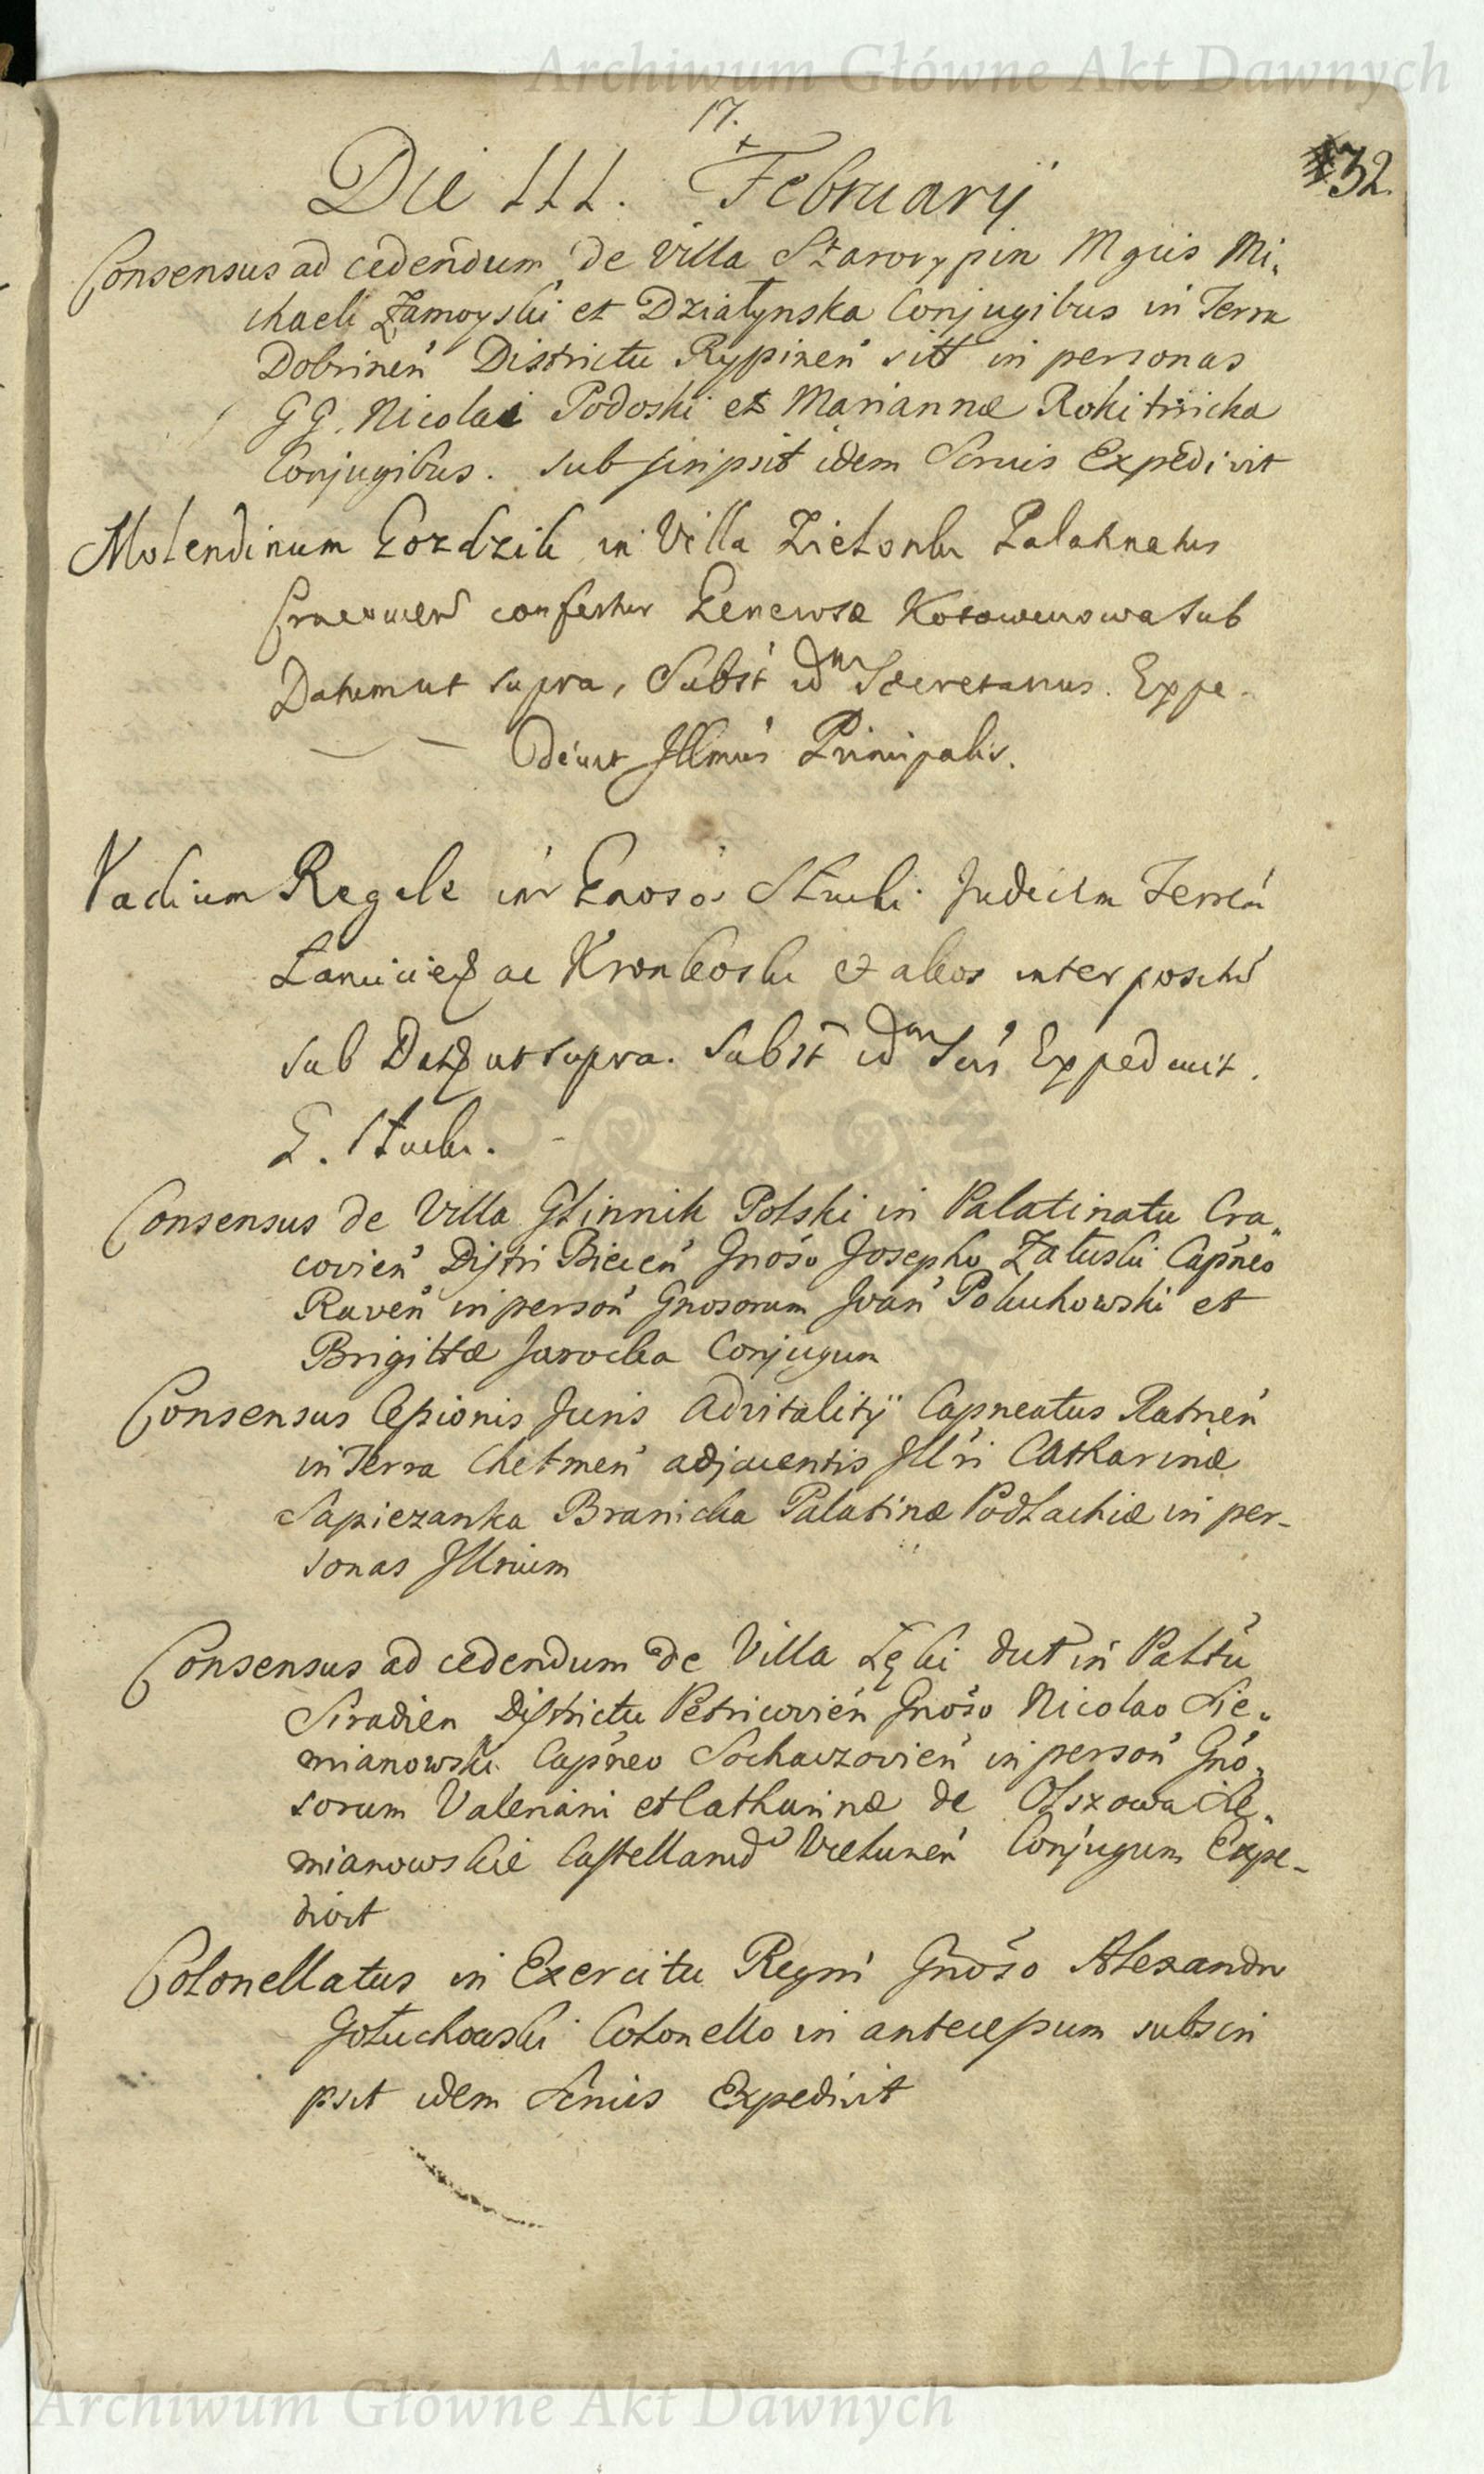 Archiwum Główne Akt Dawnych
17.
132.
Die III. Februarij
Consensus ad cedendum de Villa Starorypin Mgcis Mi-
chaeli Zamoyski et Działynska Conjugibus in Terra
Dobrinen Districtu Rypinen sitt in personas
GG. Nicolai Podoski et Mariannæ Rokitnicka
Conjugibus. Subscripsit idem Scrius Expedivit
Molendinum Gozdzik in Villa Palatinatus
confertur Genewsæ sub
Datum ut supra, Subst idm Secretarius. Expe-
divit Illmus Principalis.
Vadium Regale inr Gnoso Judicem Terren
ac et alios interpositū
sub Dat ut supra. Subst idm Scris Expedivit.
G.
Consensus de Villa Glinnik Polski in Palatinatu Cra-
covien Distri Biecen Gnoso Josepho Załuski Capneo
Raven in person Gnosorum Joan et
Brigittæ Jarocka Conjugum
Consensus Cessionis Juris Advitalitij Capneatus Ratnen
in Terra Chelmen adjacentis Illri Catharinæ
Sapiezanka Branicka Palatinæ Podlachiæ in per-
sonas Illrium
Consensus ad cedendum de Villa Łęki dut in Palttu
Siradien Districtu Petricovien Gnoso Nicolao Sie-
mianowski Capneo Sochaczovien in person Gno-
sorum Valeriani et Catharinæ de Olszowa Sie-
mianowskie Castellanid Vielunen Conjugum Expe-
divit
Colonellatus in Exercitu Regni Gnoso Alexandro
Gołuchowski Colonello in antecessum subscri
psit idem Scrius Expedivit
Archiwum Główne Akt Dawnych